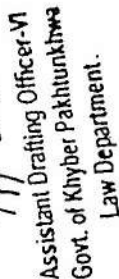 Assistant Drafting Officer-VI
Govt. of Khyber Pakhtunkhwa
Law Department.